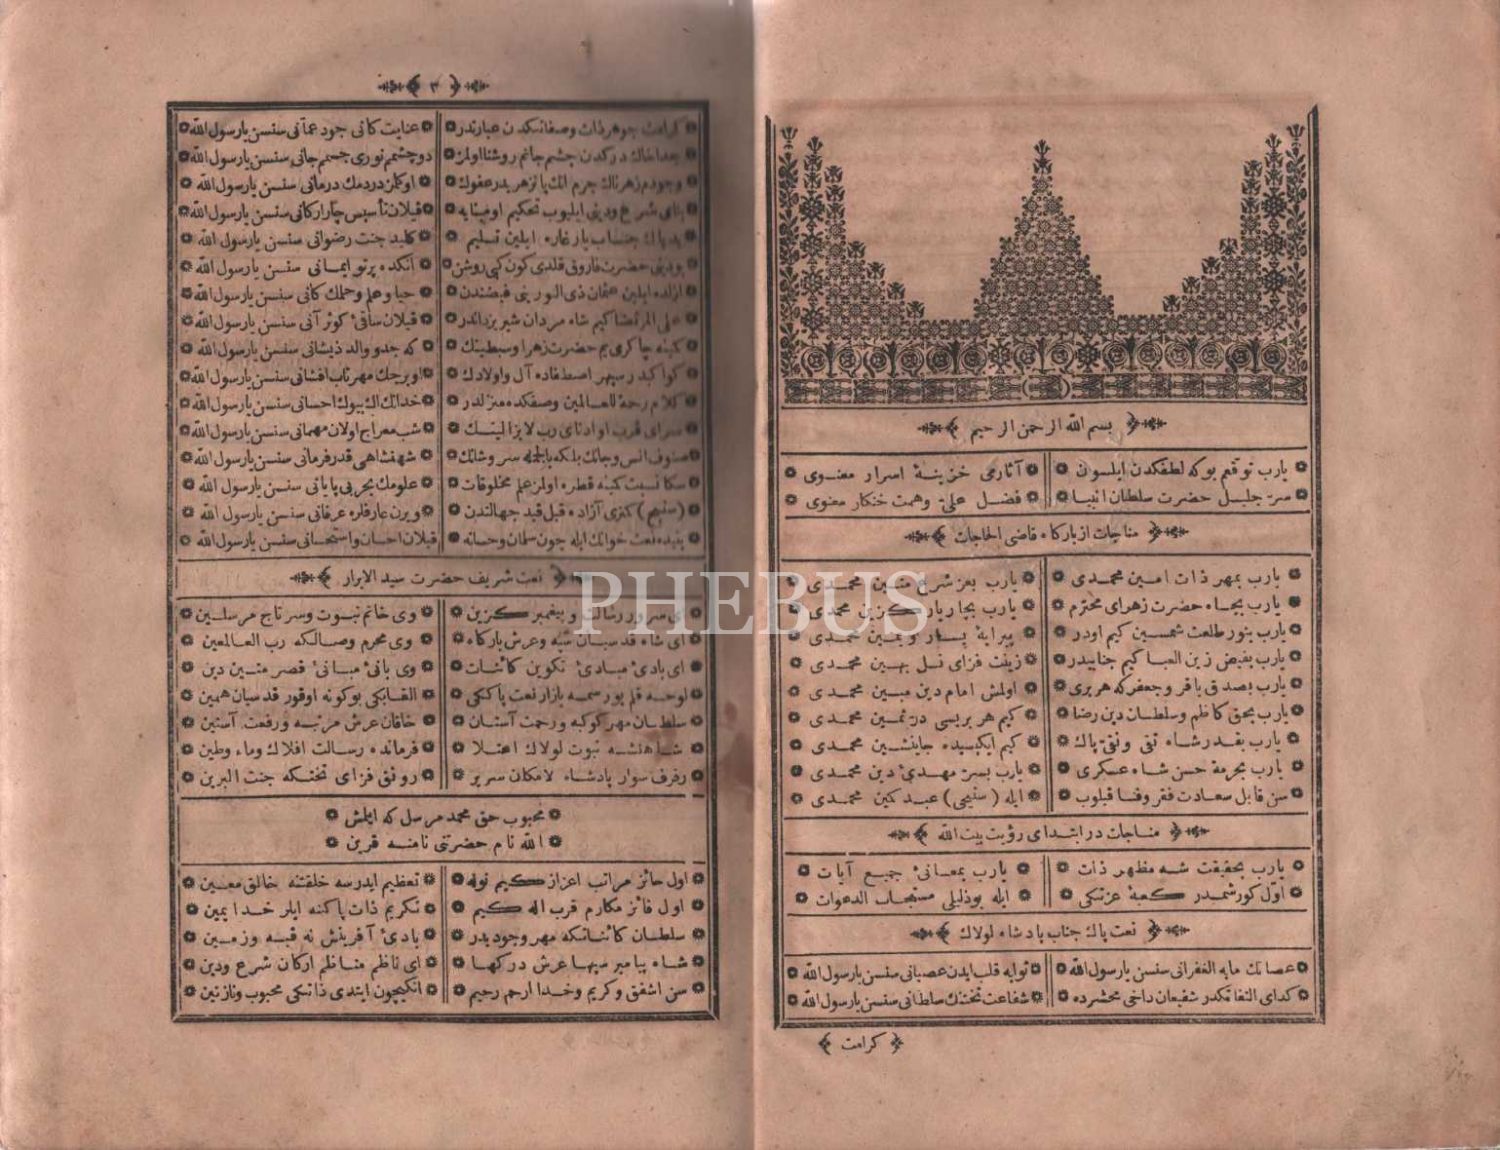 بسم الله الرحمن الرحيم
يارب توقعم بوكه لطفكدن ايلسون آثارمى خزينهٔ اسرار معنوى
سر جليل حضرت سلطان انبيا فضل على وهمت خنكار معنوى
مناجات از باركاه قاضى الحاجات
يارب بمهر ذات امين محمدى يارب بعز شرع متين محمدى
يارب بجاه حضرت زهراى محترم يارب بچاريار كزين محمدى
يارب بنور طلعت شمسين كيم اودر پيرايهٔ يسار ويمين محمدى
يارب بفيض زين العبا كيم جنابيدر زينت فزاى نسل بهين محمدى
يارب بصدق باقر وجعفر كه هر برى اولمش امام دين مبين محمدى
يارب بحق كاظم وسلطان دين رضا كيم هر بريسى در ثمين محمدى
يارب بقدر شاه تقى ونقئ پاك كيم ايكيسيده جاينشين محمدى
يارب بحرمة حسن شاه عسكرى يارب بسر مهدئ دين محمدى
سن قابل سعادت فقر وفنا قيلوب ايله (سنيحى) عبد كمين محمدى
مناجات در ابتداى رؤيت بيت الله
يارب بحقيقت شه مظهر ذات يارب بمعانئ جميع آيات
اول كورشمدر كعبهٔ عزتكى ايله بو ذليلى مستجاب الدعوات
نعت پاك جناب پادشاه لولاك
عصاتك مايه الغفرانى سنسن يارسول الله توابه قلب ايدن عصيانى سنسن يارسول الله
كداى التفاتكدر شفيعان داخى محشرده شفاعت تختنك سلطانى سنسن يارسول الله
كرامت
٣
كرامت جوهر ذات وصفاتكدن عبارتدر عنايت كانى جود عمانى سنسن يارسول الله
جدا خاك دركدن چشم جانم روشنا اولمز دو چشمم نورى جسمم جانى سنسن يارسول الله
وجودم زهرناك جرم انك پانزهريدر عفوك اوكلمز دردمك درمانى سنسن يارسول الله
بناى شرع ودينى ايليوب تحكيم قيلان تأسيس چار اركانى سنسن يارسول الله
يار غاره ايلين تسليم كليد جنت رضوانى سنسن يارسول الله
حضرت فاروق قلدى كون كبى روشن انكده پرتو ايمانى سنسن يارسول الله
ايلين عثمان ذى النورينى فيضندن حيا وعلم وحلمك كانى سنسن يارسول الله
على المرتضا كيم شاه مردان شير يزداندر قيلان ساقئ كوثر آنى سنسن يارسول الله
كمينه چاكرى يم حضرت زهرا وسبطينك كه جد ووالد ذيشانى سنسن يارسول الله
كواكبدر سپهر اصطفاده آل واولادك اوبرجك مهر تاب افشانى سنسن يارسول الله
كلام رحمة للعالمين وصفكده منزلدر خدانك اك بيوك احسانى سنسن يارسول الله
سراى قرب او ادناى رب لايزالينك شب معراج اولان مهمانى سنسن يارسول الله
صنوف انس وجانك بلكه بالجمله سروشانك شهنشاهى قدر فرمانى سنسن يارسول الله
سكا نسبت كمينه قطره اولمز علم مخلوقات علومك بحر بى پايانى سنسن يارسول الله
(سنيحى) كمترى آزاده قيل قيد جهالتدن ويرن عارفلره عرفانى سنسن يارسول الله
نعت خوانك ايله چون سلمان وحسانه قيلان احسان واستحسانى سنسن يارسول الله
نعت شريف حضرت سيد الابرار
اى سرور رسالت وپيغمبر كزين وى خاتم نبوت وسر تاج مرسلين
اى شاه قدسيان شيه وعرش باركاه وى محرم وصالكه رب العالمين
اى بادئ مبادئ تكوين كائنات وى بانئ مبانئ قصر متين دين
لوحه قلم يورسمه يازار نعت پاككى القابكى بوكونه اوقور قدسيان همين
سلطان مهر كوكبه ورحمت آستان خاقان عرش مرتبه ورفعت آستين
شاهنشه نبوت لولاك اعتلا فرمانده رسالت افلاك وماء وطين
رفرف سوار پادشاه لامكان سرير رونق فزاى تختكه جنت البرين
محبوب حق محمد مرسل كه ايلمش
الله نام حضرتنى نامنه قرين
اول حائز مراتب اعزاز كيم نوله تعظيم ايدرسه خلقتنه خالق معين
اول فائز مكارم قرب اله كيم تكريم ذات پاكنه ايلر خدا يمين
سلطان كائناتكه مهر وجوديدر بادئ آفرينش نه قبه وزمين
شاه پيامبر سپها عرش دركها اى ناظم مناظم اركان شرع ودين
سن اشفق وكريم وخدا ارحم رحيم انكيچون ايتدى ذاتكى محبوب ونازنين
PHEBUS